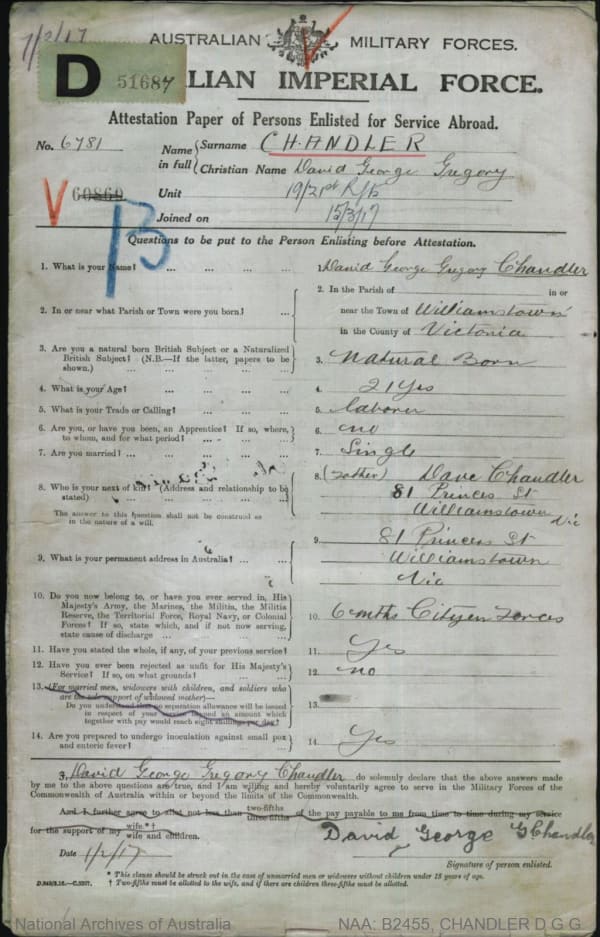 7/2/17
AUSTRALIAN MILITARY FORCES.
D 51687
ALIAN IMPERIAL FORCE.
Attestation Paper of Persons Enlisted for Service Abroad.
No. 6781
Name in full { Surname CHANDLER
Christian Name David George Gregory
60860
Unit 19/21st R/fts
Joined on 15/3/17
B
Questions to be put to the Person Enlisting before Attestation.
1. What is your Name? ... ... ... ... 1. David George Gregory Chandler
2. In or near what Parish or Town were you born? ... 2. In the Parish of in or
near the Town of Williamstown
in the County of Victoria
3. Are you a natural born British Subject or a Naturalized
British Subject? (N.B.—If the latter, papers to be
shown.) ... ... ... ... 3. Natural Born
4. What is your Age? ... ... ... ... 4. 21 yrs
5. What is your Trade or Calling? ... ... ... 5. laborer
6. Are you, or have you been, an Apprentice? If so, where,
to whom, and for what period? ... ... ... 6. no
7. Are you married? ... ... ... ... 7. Single
8. Who is your next of kin? (Address and relationship to be
stated) 8. (Father) Dave Chandler
81 Princes St
Williamstown
Vic
The answer to this question shall not be construed as
in the nature of a will.
9. What is your permanent address in Australia? ... ... 9. 81 Princes St
Williamstown
Vic
10. Do you now belong to, or have you ever served in, His
Majesty's Army, the Marines, the Militia, the Militia
Reserve, the Territorial Force, Royal Navy, or Colonial
Forces? If so, state which, and if not now serving,
state cause of discharge ... ... ... 10. 6 mths Citizen Forces
11. Have you stated the whole, if any, of your previous service? 11. Yes
12. Have you ever been rejected as unfit for His Majesty's
Service? If so, on what grounds? ... ... 12. no
13. (For married men, widowers with children, and soldiers who
are the sole support of widowed mother)—
Do you understand that no separation allowance will be issued
in respect of your service beyond an amount which
together with pay would reach eight shillings per day? 13.
14. Are you prepared to undergo inoculation against small pox
and enteric fever? ... ... ... ... 14. Yes
I, David George Gregory Chandler do solemnly declare that the above answers made
by me to the above questions are true, and I am willing and hereby voluntarily agree to serve in the Military Forces of the
Commonwealth of Australia within or beyond the limits of the Commonwealth.
And I further agree to allot not less than two-fifths three-fifths of the pay payable to me from time to time during my service
for the support of my wife.*† wife and children.
David George G Chandler
Date 1/2/17
Signature of person enlisted.
* This clause should be struck out in the case of unmarried men or widowers without children under 18 years of age.
† Two-fifths must be allotted to the wife, and if there are children three-fifths must be allotted.
National Archives of Australia
NAA: B2455, CHANDLER D G G